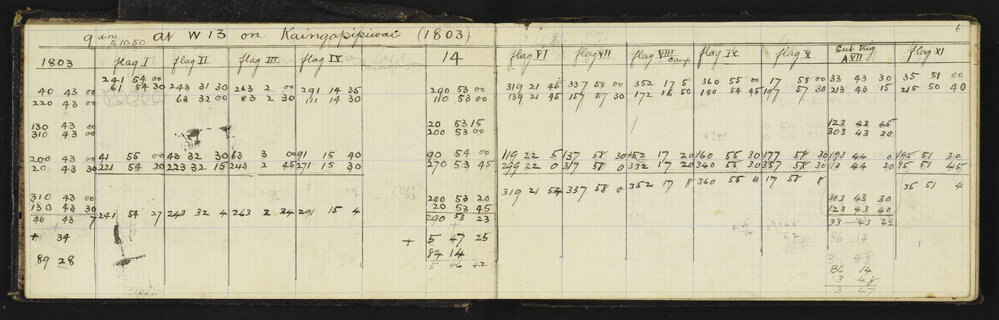 6
9 a.m. at W 13 on Kaingapipiwai (1803)
1803 flag I flag II flag III flag IV 14 flag VI flag VII flag VIII camp flag IX flag X Cut Trig A VII flag XI
241 54 00
40 43 00 61 54 30 243 31 30 263 2 00 291 14 35 290 53 00 319 21 45 337 58 00 352 17 5 360 55 00 17 58 00 33 43 30 35 51 00
220 43 00 63 32 00 83 2 30 111 14 30 110 53 00 139 21 45 157 57 30 172 16 50 180 54 45 197 57 30 213 43 15 215 50 40
130 43 00 20 53 15 123 43 45
310 43 00 200 53 00 303 43 30
200 43 00 41 55 00 43 32 30 63 3 00 91 15 40 90 54 00 119 22 5 137 58 30 152 17 20 160 55 30 177 58 30 193 44 0 195 51 30
20 43 30 221 54 20 223 32 15 243 2 45 271 15 30 270 53 45 299 22 0 317 58 0 332 17 20 340 55 30 357 58 30 13 44 30 15 51 45
319 21 54 337 58 0 352 17 8 360 55 11 17 58 8 35 51 4
310 43 00 200 53 20 303 43 30
130 43 30 20 53 45 123 43 40
40 43 7 241 54 27 243 32 4 263 2 34 291 15 4 290 53 23 33 43 32
+ 34 + 5 47 25
89 28 84 14
5 46 42
86 14
3 48
3 47